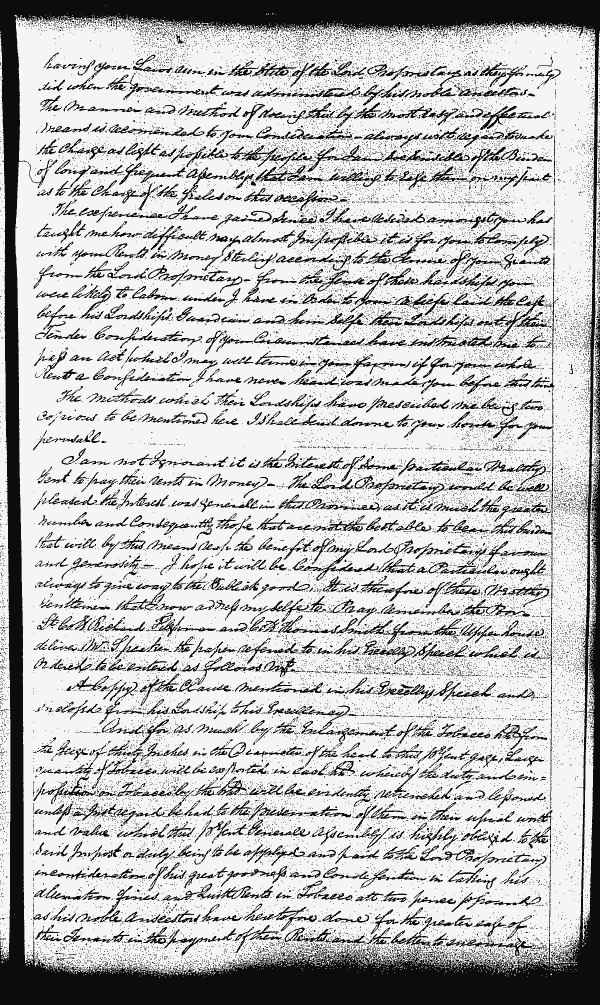 having your Laws run in the Stile of the Lord Proprietary as they formerly
did when the government was administered by his noble Ancestors -
The Manner and method of doeing this by the most Easy and effectual
means is recomended to your Consideration - always with regard to make
the Charge as light as possible to the people for I am too sensible of the Burden
of long and frequent Assemblys that I am willing to Ease them on my part
as to the Charge of the Seales on this occasion -
The experience I have gained since I have resided amongst you has
taught me how difficult nay almost Impossible it is for you to Comply
with your Rents in Money Sterling according to the Tenure of your Grants
from the Lord Proprietary - from the Sense of these hardships you
were likely to labour under I have in Order to your releife laid the Case
before his Lordships Guardian and him Selfe their Lordships out of their
Tender Consideration of your Circumstances have instructed me to
pass an Act which I may well terme in your favour if for your whole
Rents a Consideration I have never heard was made you before this time
The methods which their Lordships have prescribed me being two
copious to be mentioned here I shall send downe to your house for your
perusall -
I am not Ignorant it is the Interest of Some particular Wealthy
Gent to pay their rents in Money - the Lord Proprietary would be well
pleased the Interest was generall in this Province as it is much the greater
number and Consequently those that are not the best able to bear this burden
that will by this means reap the benefit of my Lord Proprietarys favour
and generosity - I hope it will be Considered that a Particular ought
always to give way to the Publick good It is therefore of these Wealthy
Gentlemen that I now adress my selfe to Pray remember the Poor -
Lt Coll Richard Tilghman and Coll Thomas Smith from the Upper house
deliver Mr. Speaker the paper referred to in his Excellys Speech which is
Ordered to be entered as follows vizt
A Coppy of the Clause mentioned in his Excellys Speech and
inclosed from his Lordship to his Excellency
And for as much by the Enlargement of the Tobacco hhd from
the Geage of thirty Inches in the Diameter of the head to this psent gage, Larger
quantity of Tobacco will be exported in each hhd whereby the duty and im=
position on Tobacco by the hhd will be evidently retrenched and lessoned
unless a just regard be had to the preservation of them in their usual worth
and value which this psent Generale Assembly is highly obliged to the
said Impost or duty being to be applyed and paid to the Lord Proprietary
in consideration of his great goodness and Condesention in taking his
alienation fines and Quitt Rents in Tobacco att two pence p pound
as his noble Ancestors have heretofore done for the greater ease of
their Tenants in the payment of their Rents and the better to encourage